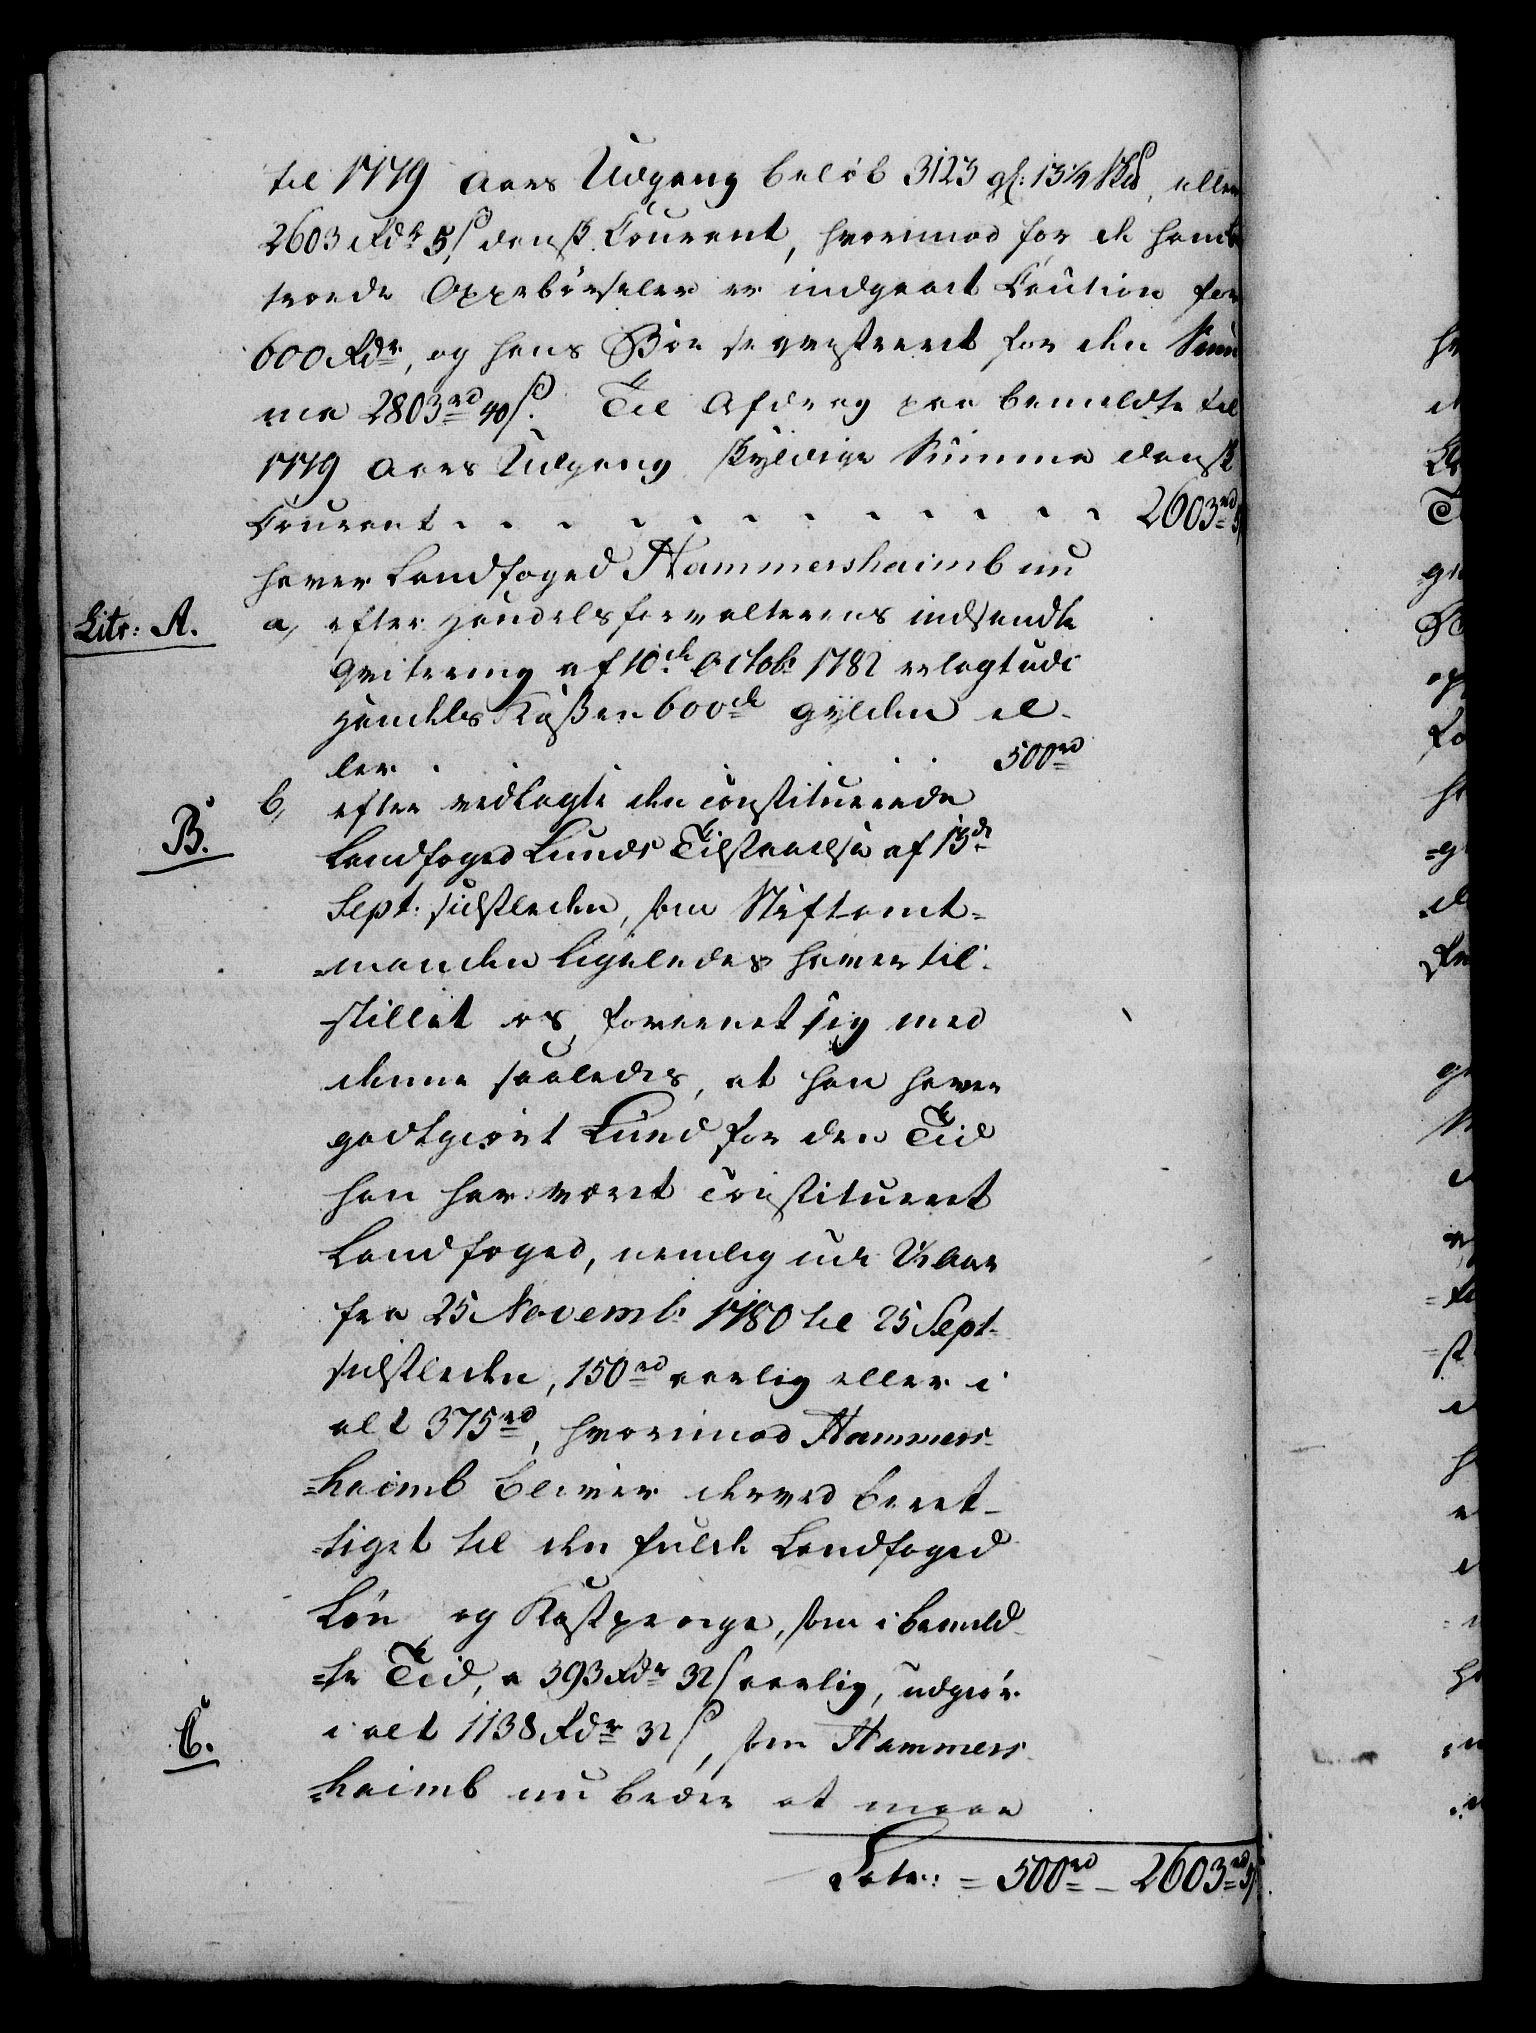 til 1779 Aars Udgang beløb 3123 gl: 13¼ Skd, eller
2603 Rdr 5 s dansk Courant, hvorimod for de ham be
troede Oppebørseler er indgaaet Caution for
600 Rdr, og hans Boe seqvestreret for den Sum
ma 2803 rd 40 s. Til Afdrag paa bemeldte til
1779 Aars Udgang skyldige Summa dansk
Courant . . . . . . . . . . 2603 rd 5
haver Landfoged Hammershaimb nu
Litr: A. a, efter Handelsforvalterens indsendte
Qvitering af 10de Octob: 1782 erlagt udi
Handels Kaßen 600de gylden el-
ler . . . . 500 rd
B. b, efter vedlagte den constituerede
Landfoged Lunds Tilstaaelse af 13de
Sept: sidstleden, som Stiftamt-
=manden ligeledes haver til-
stillet os, foreenet sig med
denne saaledes, at han haver
godtgiort Lund for den Tid
han har været constitueret
Landfoged, nemlig udi 2½ Aar
fra 25 Novemb: 1780 til 25 Sept-
sidstleden, 150 rd aarlig eller i
alt 375 rd, hvorimod Hammers-
=haimb bliver derved beret-
=tiget til den fulde Landfoged
Løn og Kostpenge, som i bemeld-
=te Tid, a 393 Rdr 32 s aarlig, udgiør
C. i alt 1138 Rdr 32 s, som Hammers-
=haimb nu beder at maae
Latr: = 500 rd - 2603 rd 5